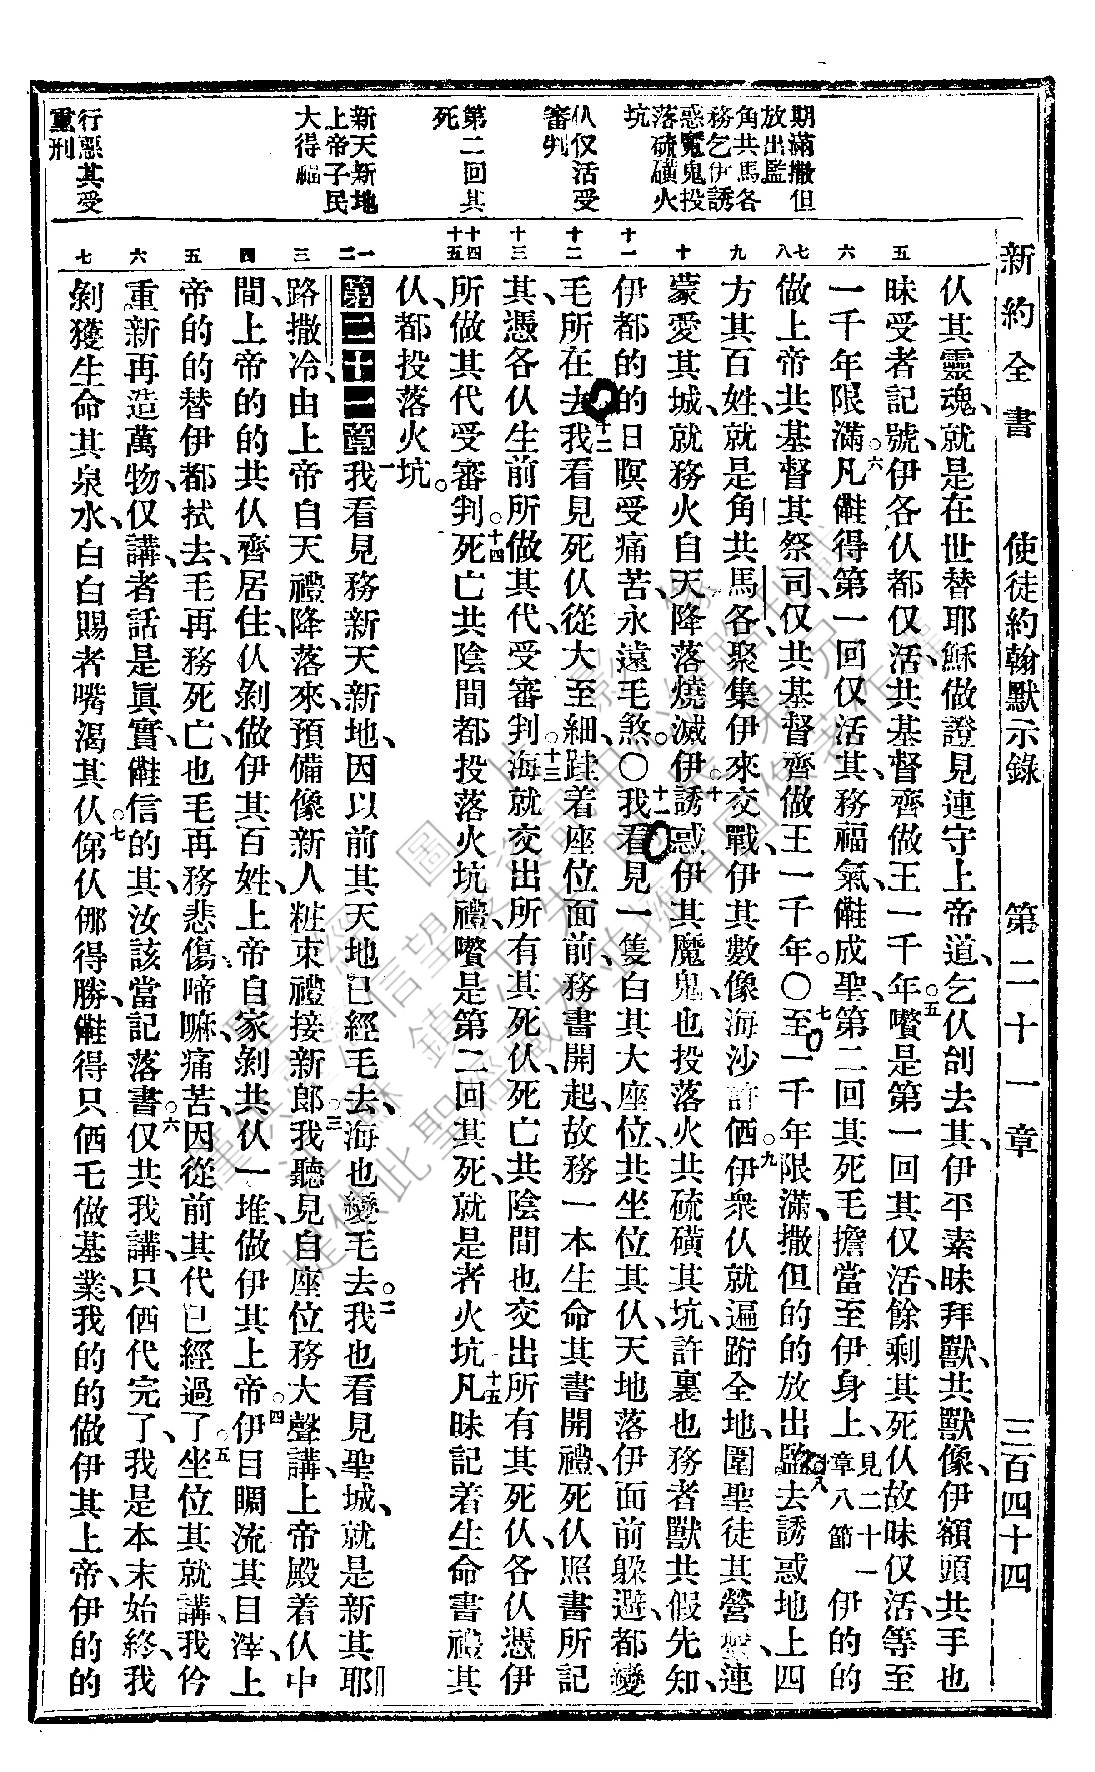 新約全書 使徒約翰默示錄 第二十一章 三百四十四
期滿撒但
放出監
角共馬各
務乞伊誘
惑魔鬼投
落硫磺火
坑
仈仅活受
審判
第二回其
死
新天新地
上帝子民
大得福
行惡其受
重刑
五 六 七 八 九 十 十一 十二 十三 十四 十五 一 二 三 四 五 六 七
仈其靈魂、就是在世替耶穌做證見連守上帝道、乞仈刣去其、伊平素昧拜獸、共獸像、伊額頭共手也
昧受者記號、伊各仈都仅活、共基督齊做王一千年、○五嚽是第一回其仅活、餘剩其死仈、故昧仅活、等至
一千年限滿、○六凡得第一回仅活其務福氣、成聖、第二回其死毛擔當至伊身上、見二十一章八節伊的的
做上帝共基督其祭司、仅共基督齊做王一千年。○七至一千年限滿、撒但的的放出監、八去誘惑地上四
方其百姓、就是角共馬各、聚集伊來交戰、伊其數像海沙許価、○九伊衆仈就遍跔全地、圍聖徒其營壘、連
蒙愛其城、就務火自天降落燒滅伊、○十誘惑伊其魔鬼、也投落火共硫磺其坑、許裏也務者獸共假先知、
伊都的的日暝受痛苦、永遠毛煞。○十一我看見一隻白其大座位、共坐位其仈、天地落伊面前躲避、都變
毛所在去、十二我看見死仈、從大至細、跬着座位面前、務書開起、故務一本生命其書開禮、死仈照書所記
其、憑各仈生前所做其代受審判、○十三海就交出所有其死仈、死亡共陰間也交出所有其死仈、各仈憑伊
所做其代受審判、○十四死亡共陰間都投落火坑禮、嚽是第二回其死、就是者火坑、十五凡昧記着生命書禮其
仈、都投落火坑。
第二十一章一我看見務新天新地、因以前其天地已經毛去、海也變毛去。二我也看見聖城、就是新其耶
路撒冷、由上帝自天禮降落來、預備像新人粧束禮接新郎、○三我聽見自座位務大聲講、上帝殿着仈中
間、上帝的的共仈齊居住、仈剝做伊其百姓、上帝自家剝共仈一堆、做伊其上帝、○四伊目睭流其目滓、上
帝的的替伊都拭去、毛再務死亡、也毛再務悲傷、啼嘛、痛苦、因從前其代已經過了、○五坐位其就講、我仱
重新再造萬物、仅講、者話是眞實、信的其、汝該當記落書、○六仅共我講、只価代完了、我是本末始終、我
剝獲生命其泉水、白白賜者嘴渴其仈、○七俤仈哪得勝、得只価毛做基業、我的的做伊其上帝、伊的的